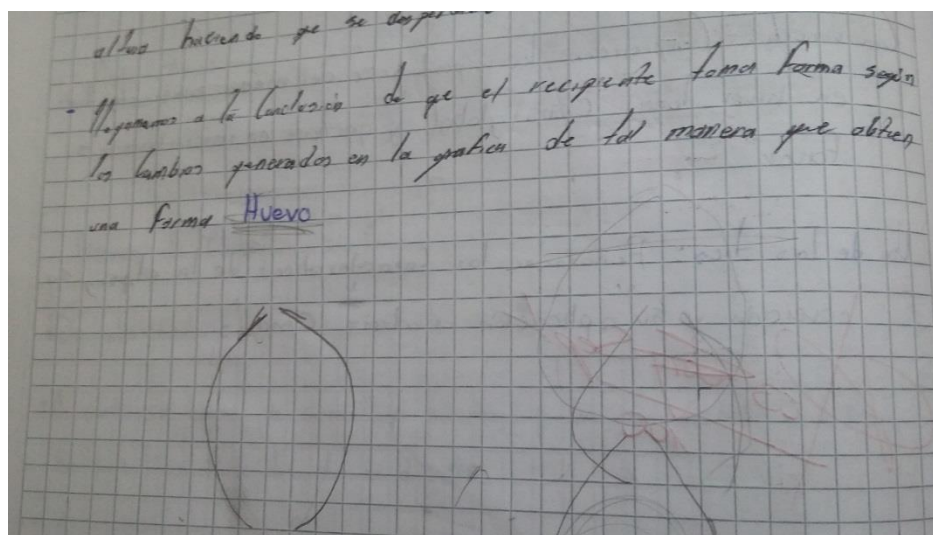 altos haciendo que se
- llegamos a la conclusión de que el recipiente toma forma según
los cambios generados en la grafica de tal manera que obtien
una forma Huevo